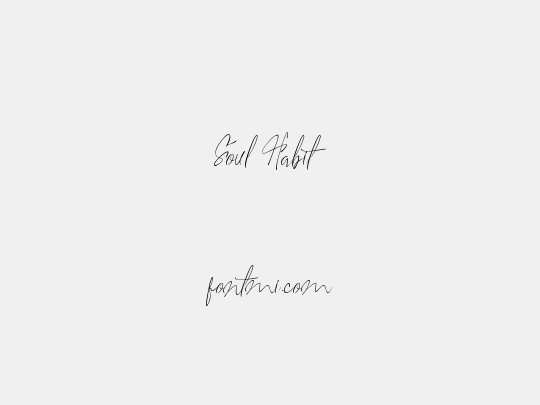 Soul Habit
fontmi.com